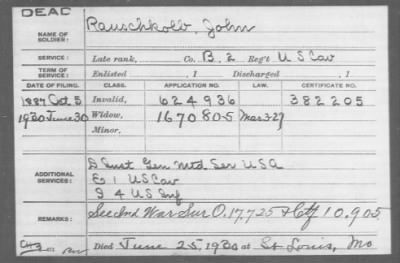 DEAC
NAME OF SOLDIER: Rauschkolb, John
SERVICE: Late rank, Co. B. 2 Reg't U S Cav
TERM OF SERVICE: Enlisted , 1 Discharged , 1
DATE OF FILING. CLASS. APPLICATION NO. LAW. CERTIFICATE NO.
1887 Oct 5 Invalid, 624936 382205
1930 June 30 Widow, 1670805 Mar 3-27
Minor,
ADDITIONAL SERVICES: D Inst Gen Mtd Ser U S A
E 1 U S Cav
I 4 U S Inf
REMARKS: See Ind War Sur O. 17,725 & Ctf 10,905
Died June 25, 1930 at St Louis, Mo